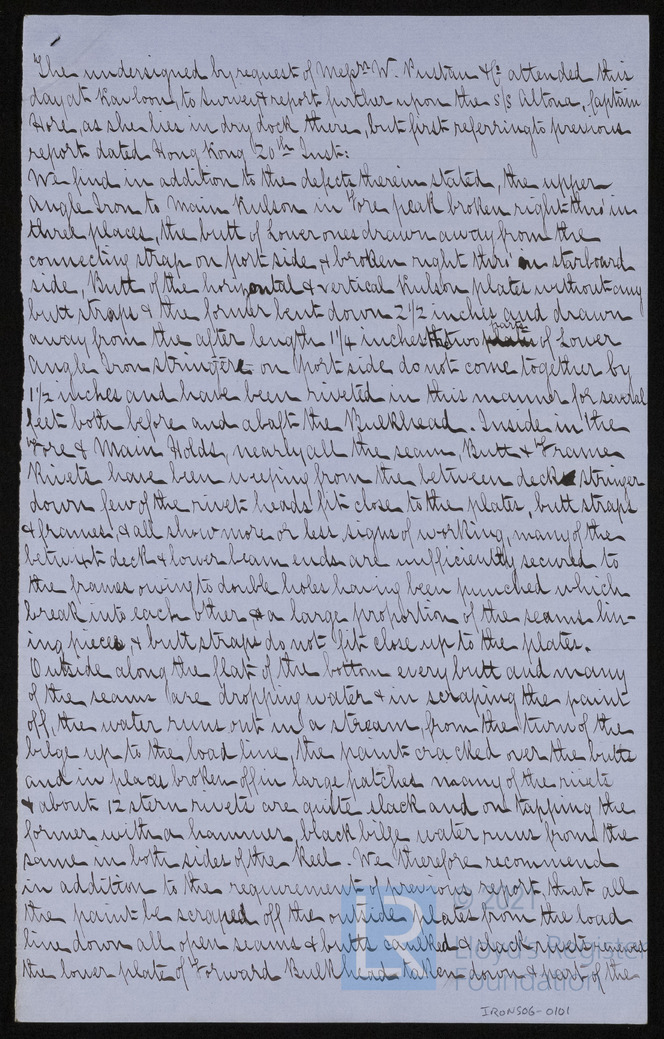 The undersigned by request of Messrs W. Pustau & Co attended this
day at Kowloon, to survey & report further upon the s/s Altona, Captain
Hore, as she lies in dry dock there, but first referring to previous
report dated Hong Kong 20th Inst:
We find in addition to the defects therein stated, the upper
angle Iron to Main Kulson in Fore peak broken right thro in
three places, the butt of Lower ones drawn away from the
connecting strap on port side & broken right thro in starboard
side, Butt of the horizontal & vertical Kulson plates without any
butt straps & the former bent down 2 1/2 inches and drawn
away from the after length 1 1/4 inches the two parts of Lower
angle Iron stringers on port side do not come together by
1 1/2 inches and have been riveted in this manner for several
feet both before and abaft the Bulkhead. Inside in the
Fore & Main Holds, nearly all the seam, Butt & Frame
Rivets have been weeping from the between deck stringer
down few of the rivet heads fit close to the plates, butt straps
& frames, & all show more or less signs of working, many of the
betwixt deck & lower beam ends are insufficiently secured to
the frames owing to double holes having been punched which
break into each other & a large proportion of the seams lin-
ing pieces & butt straps do not fit close up to the plates.
Outside along the flat of the bottom every butt and many
of the seams are dropping water & in scraping the paint
off, the water runs out in a stream, from the turn of the
bilge up to the load line, the paint cracked over the butts
and in places broken off in large patches many of the rivets
& about 12 stern rivets are quite slack and on tapping the
former with a hammer, black bilge water runs from the
same in both sides of the Keel. We therefore recommend
in addition to the requirement of previous report, that all
the paint be scraped off the outside plates from the load
line down all open seams & butts caulked & slack rivets renewed
the lower plate of Forward Bulkhead taken down & part of the
© 2021
LR
Lloyd's Register
Foundation
IRONS06-0101